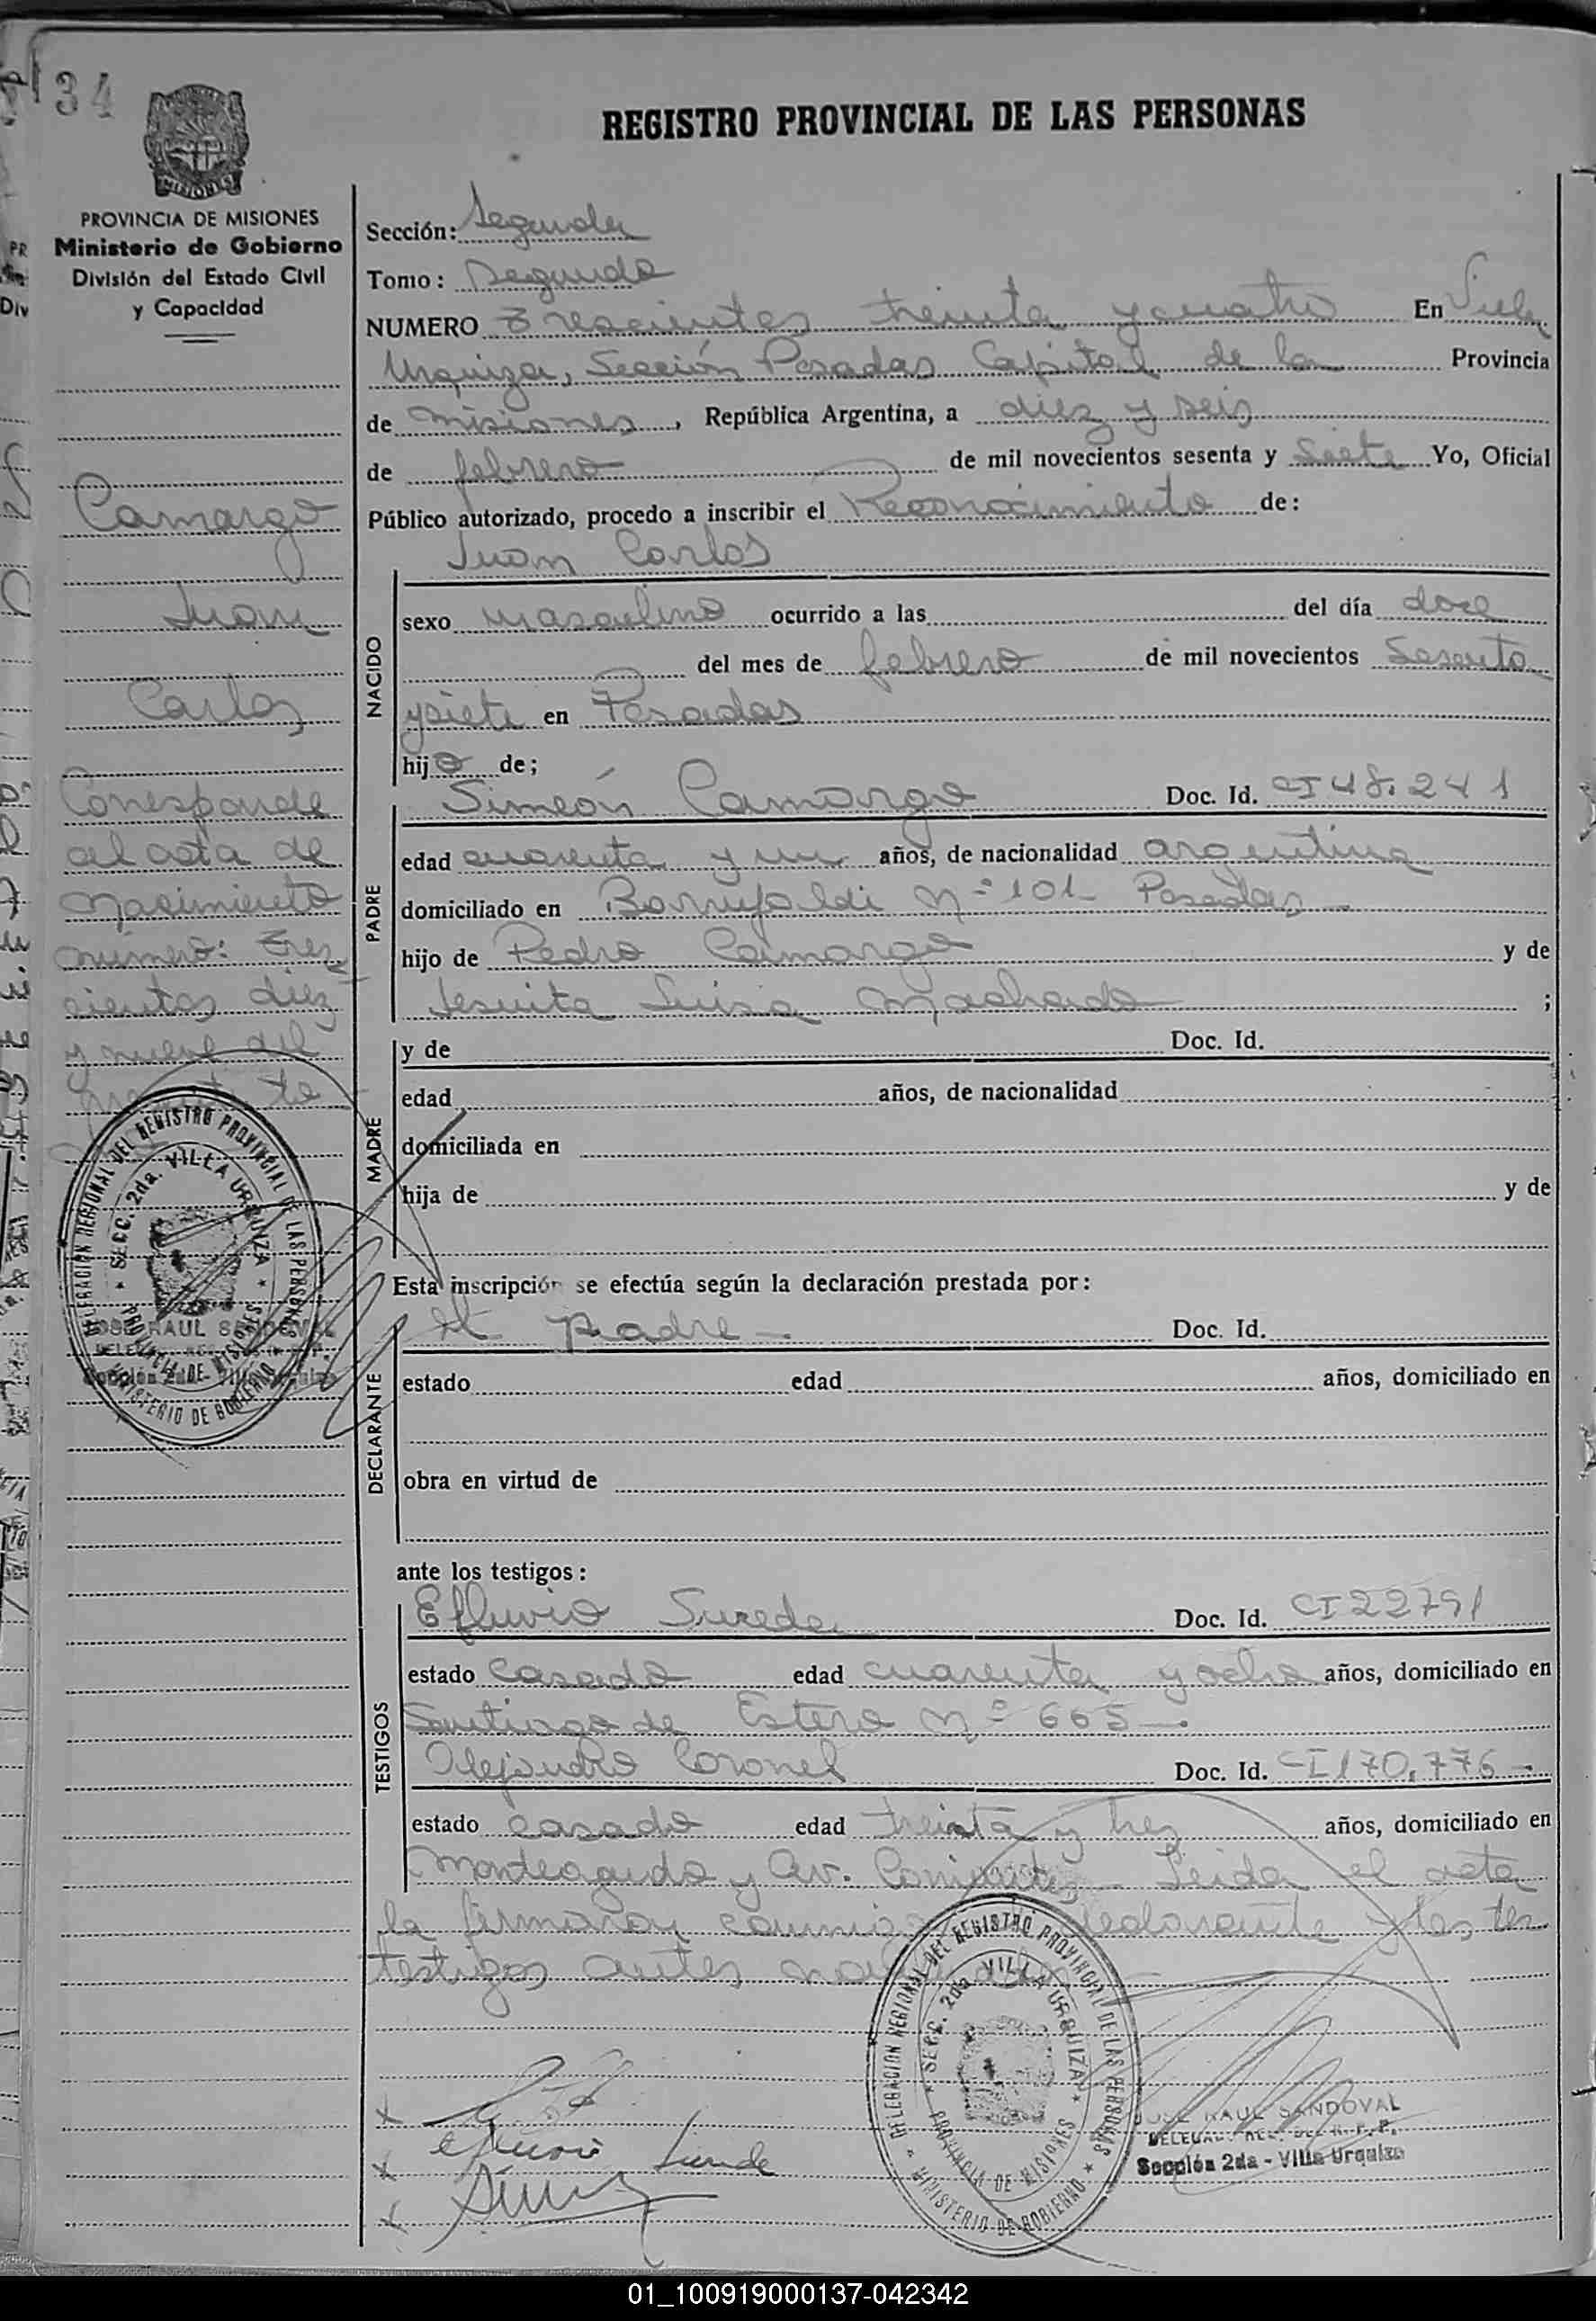 34
MISIONES
PROVINCIA DE MISIONES
Ministerio de Gobierno
División del Estado Civil
y Capacidad
REGISTRO PROVINCIAL DE LAS PERSONAS
Sección: Segunda
Tomo: Segundo
NUMERO Trescientos treinta y cuatro En Villa
Urquiza, Sección Posadas Capital de la Provincia
de Misiones, República Argentina, a diez y seis
de febrero de mil novecientos sesenta y Siete Yo, Oficial
Público autorizado, procedo a inscribir el Reconocimiento de:
Juan Carlos
NACIDO
sexo masculino ocurrido a las del día doce
del mes de febrero de mil novecientos Sesenta
y siete en Posadas
hijo de;
PADRE
Simeón Camargo Doc. Id. CI 48.241
edad cuarenta y un años, de nacionalidad argentina
domiciliado en Nº 101 Posadas
hijo de Pedro Camargo y de
Jesuita Luisa Machado ;
MADRE
y de Doc. Id.
edad años, de nacionalidad
domiciliada en
hija de y de
Esta inscripción se efectúa según la declaración prestada por:
DECLARANTE
el padre.- Doc. Id.
estado edad años, domiciliado en
obra en virtud de
ante los testigos:
TESTIGOS
Efluvio Sureda Doc. Id. CI 22791
estado Casado edad cuarenta y ocho años, domiciliado en
Santiago de Estero Nº 665 -.
Alejandro Coronel Doc. Id. CI 170.776 -
estado casado edad treinta y tres años, domiciliado en
Monteagudo y Av. Leida el acta
la firman declarante y los tes
testigos antes
Camargo
Juan
Carlos
Corresponde
al acta de
Nacimiento
número: tres
cientos diez
y nueve del
DELEGACION REGIONAL DEL REGISTRO PROVINCIAL DE LAS PERSONAS
SECC. 2da. VILLA URQUIZA
PROVINCIA DE MISIONES
MINISTERIO DE GOBIERNO
JOSE RAUL SANDOVAL
Sección 2da - Villa Urquiza
DELEGACION REGIONAL DEL REGISTRO PROVINCIAL DE LAS PERSONAS
SECC. 2da VILLA URQUIZA
PROVINCIA DE MISIONES
MINISTERIO DE GOBIERNO
JOSE RAUL SANDOVAL
DELEGADO REG. DEL R. P. P.
Sección 2da - Villa Urquiza
01_100919000137-042342